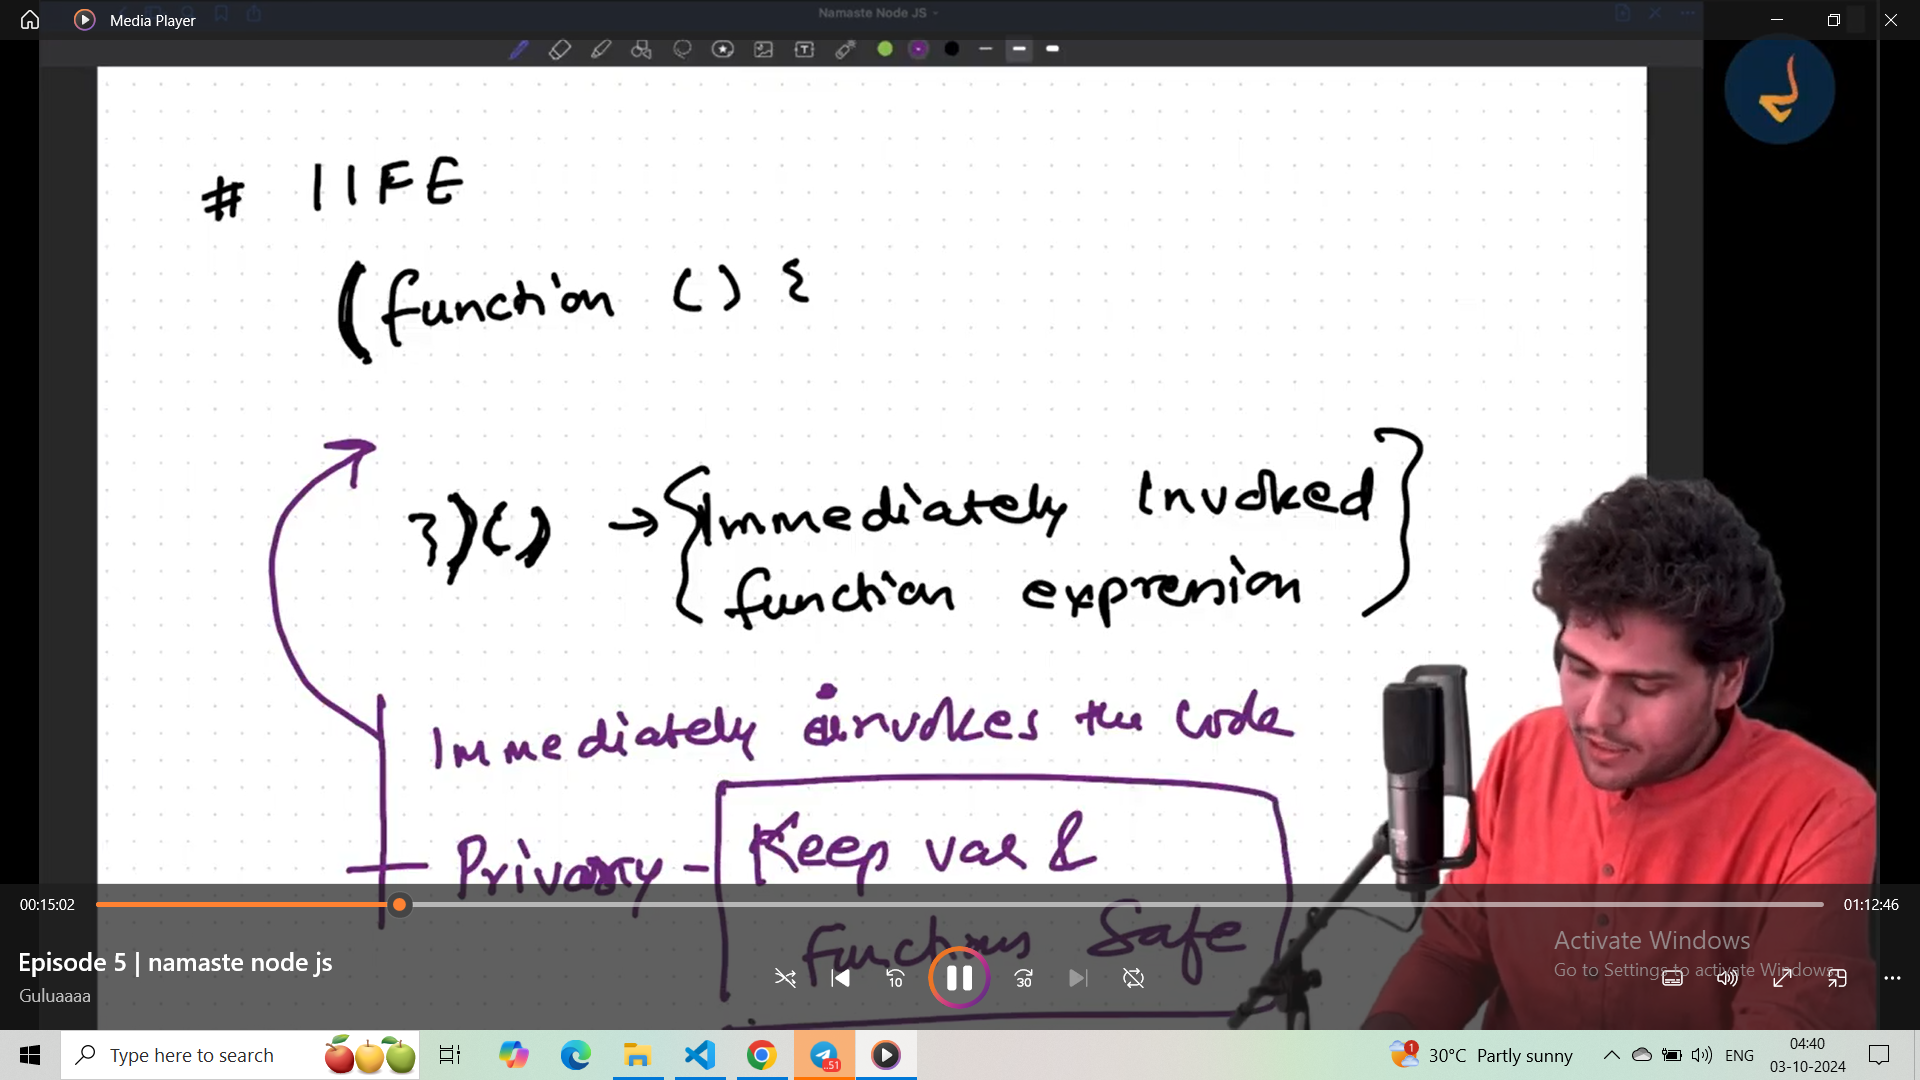 Media Player
Namaste Node JS
# IIFE
(function () {
})() → {Immediately Invoked
function expression}
Immediately invokes the code
Privacy - Keep var &
functions safe
00:15:02
01:12:46
Episode 5 | namaste node js
Guluaaaa
10
30
Activate Windows
Go to Settings to activate Windows.
Type here to search
51
1
30°C Partly sunny
ENG
04:40
03-10-2024